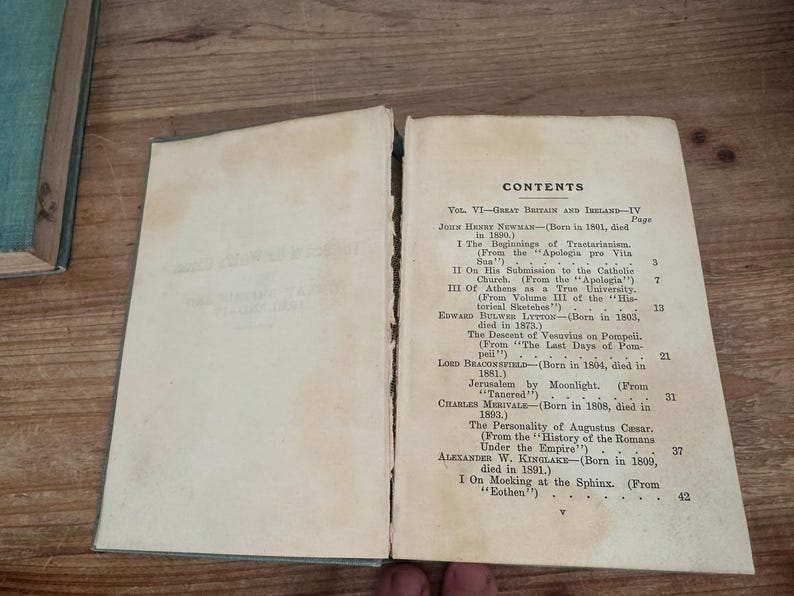 CONTENTS
VOL. VI—GREAT BRITAIN AND IRELAND—IV
Page
JOHN HENRY NEWMAN—(Born in 1801, died
in 1890.)
I The Beginnings of Tractarianism.
(From the "Apologia pro Vita
Sua") . . . . . . . . . 3
II On His Submission to the Catholic
Church. (From the "Apologia") 7
III Of Athens as a True University.
(From Volume III of the "His-
torical Sketches") . . . . . 13
EDWARD BULWER LYTTON—(Born in 1803,
died in 1873.)
The Descent of Vesuvius on Pompeii.
(From "The Last Days of Pom-
peii") . . . . . . . . . 21
LORD BEACONSFIELD—(Born in 1804, died in
1881.)
Jerusalem by Moonlight. (From
"Tancred") . . . . . . . 31
CHARLES MERIVALE—(Born in 1808, died in
1893.)
The Personality of Augustus Cæsar.
(From the "History of the Romans
Under the Empire") . . . . 37
ALEXANDER W. KINGLAKE—(Born in 1809,
died in 1891.)
I On Mocking at the Sphinx. (From
"Eothen") . . . . . . . 42
v